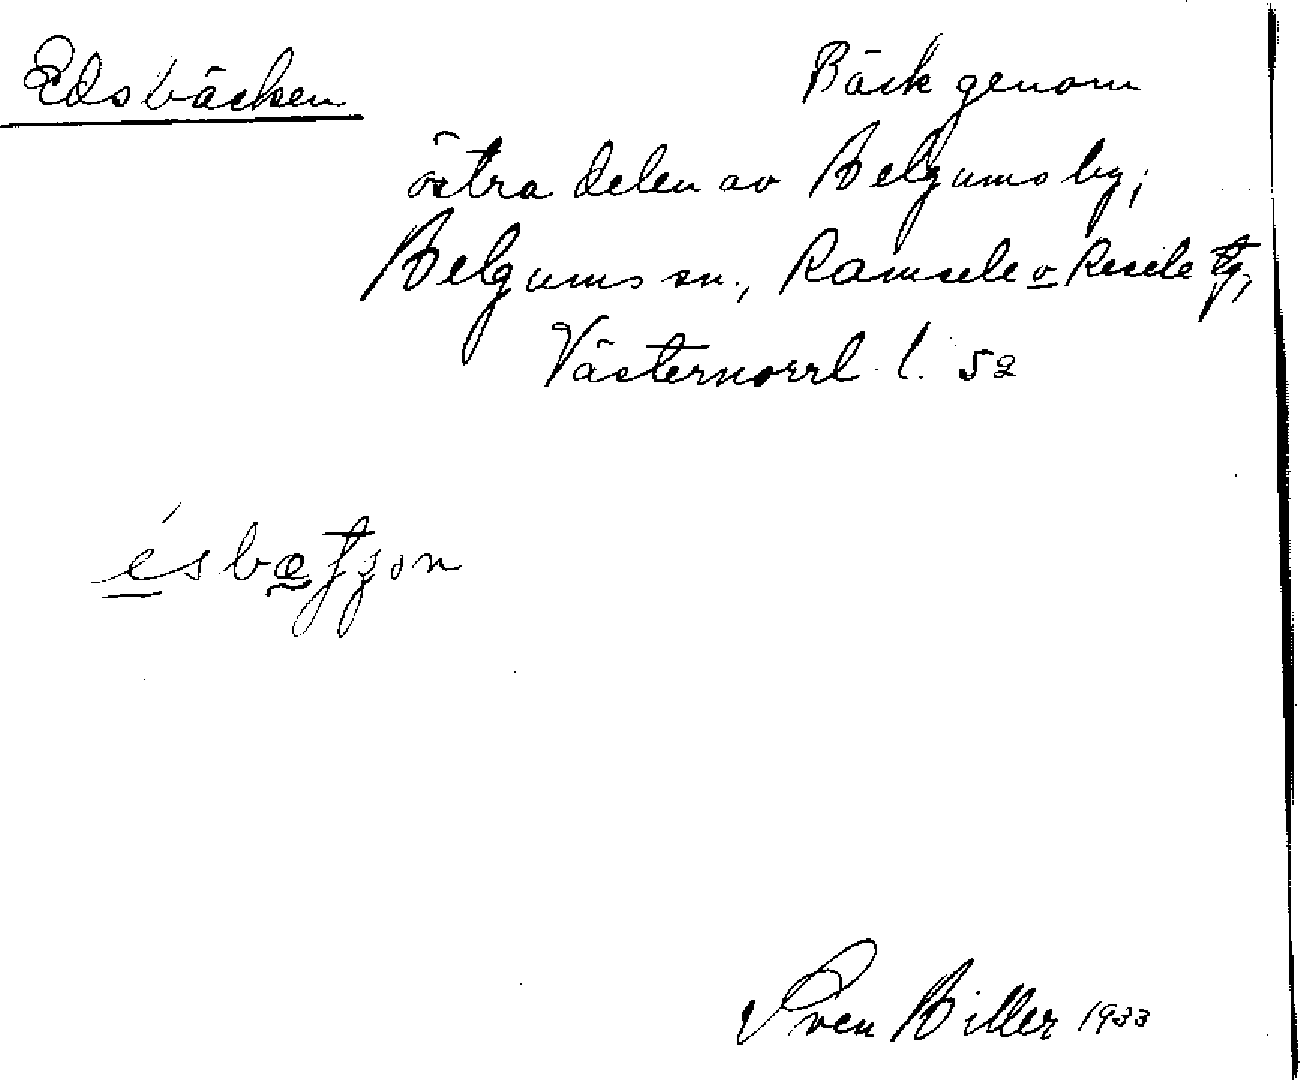 Edsbäcken Bäck genom
östra delen av Helgums by,
Helgums sn., Ramsele o Resele tg,
Västernorrl l. 52
Sven Hiller 1933